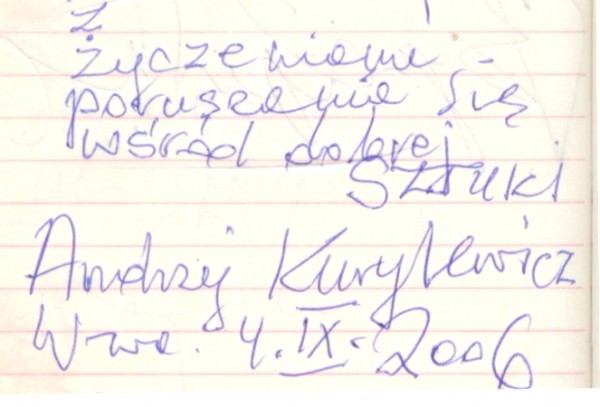 z
życzeniami
poruszania się
wśród dobrej
Sztuki
Andrzej Kurylewicz
W-wa. 4.IX.2006